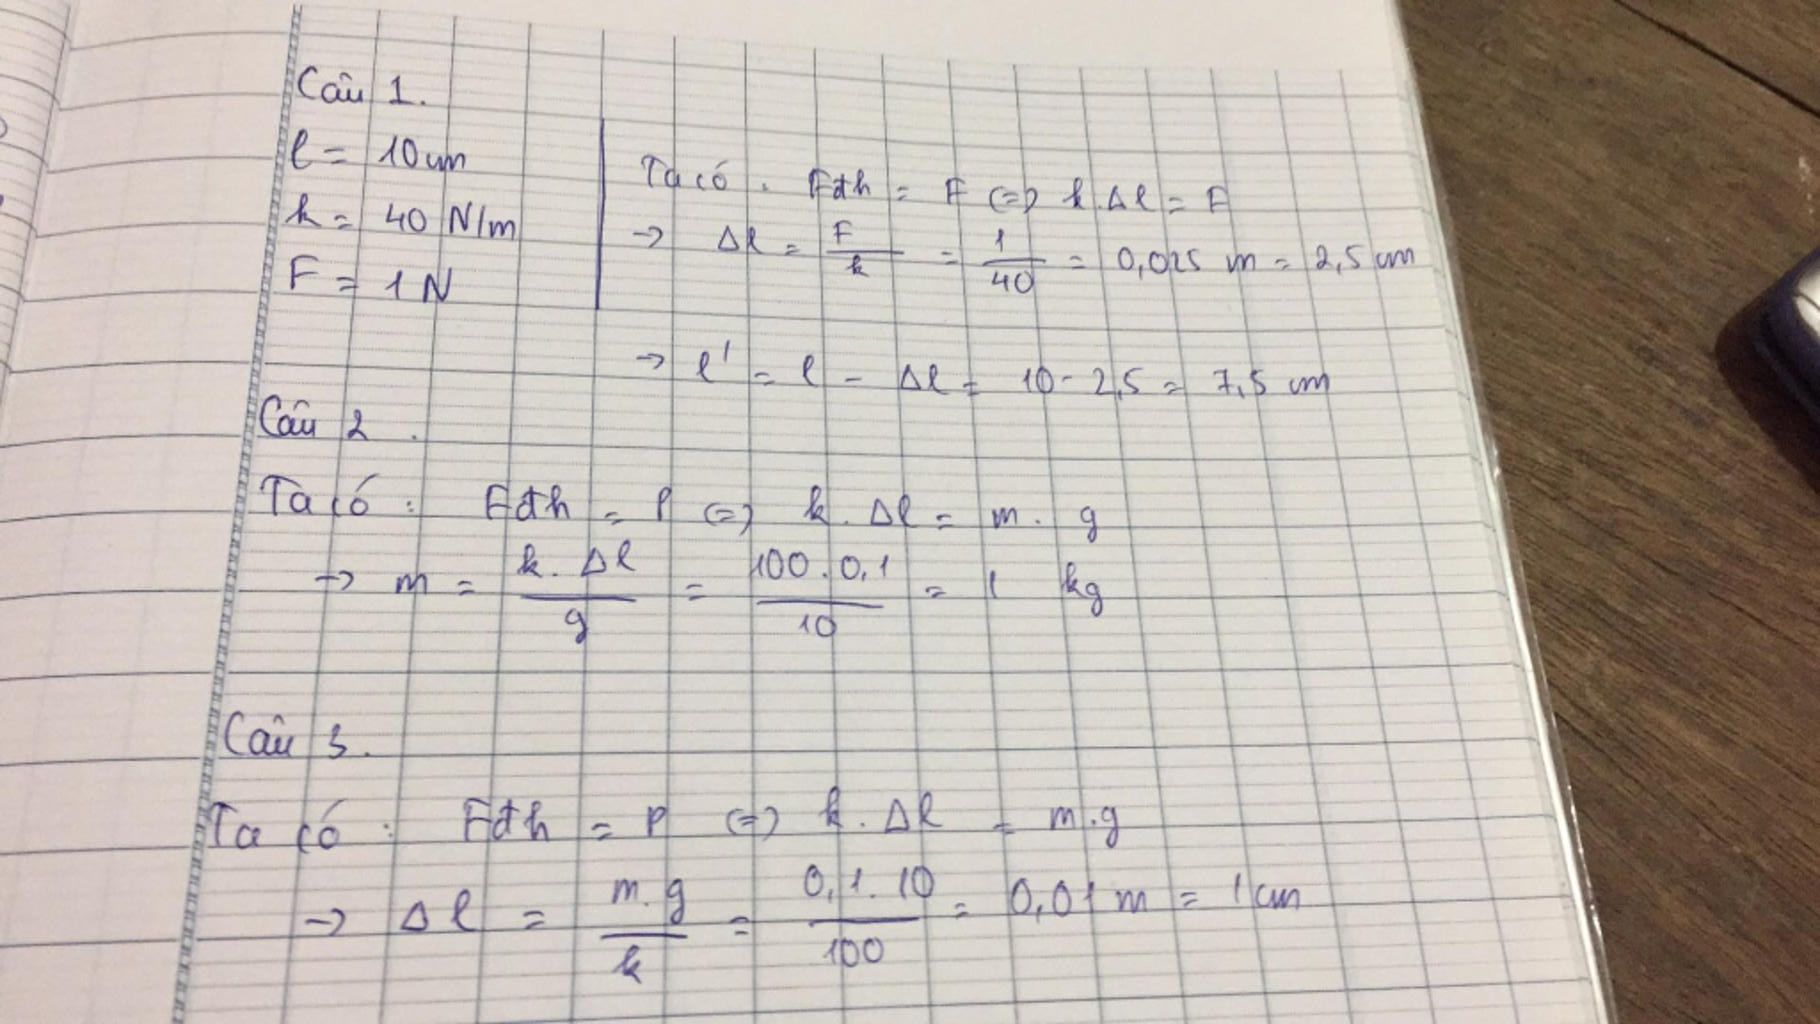 Câu 1.
l = 10 cm
k = 40 N/m
F = 1 N
Ta có : Fđh = F <=> k.Δl = F
→ Δl = F/k = 1/40 = 0,025 m = 2,5 cm
→ l' = l - Δl = 10 - 2,5 = 7,5 cm
Câu 2.
Ta có : Fđh = P <=> k.Δl = m.g
→ m = k.Δl/g = 100.0,1/10 = 1 kg
Câu 3.
Ta có : Fđh = P <=> k.Δl = m.g
→ Δl = m.g/k = 0,1.10/100 = 0,01 m = 1 cm